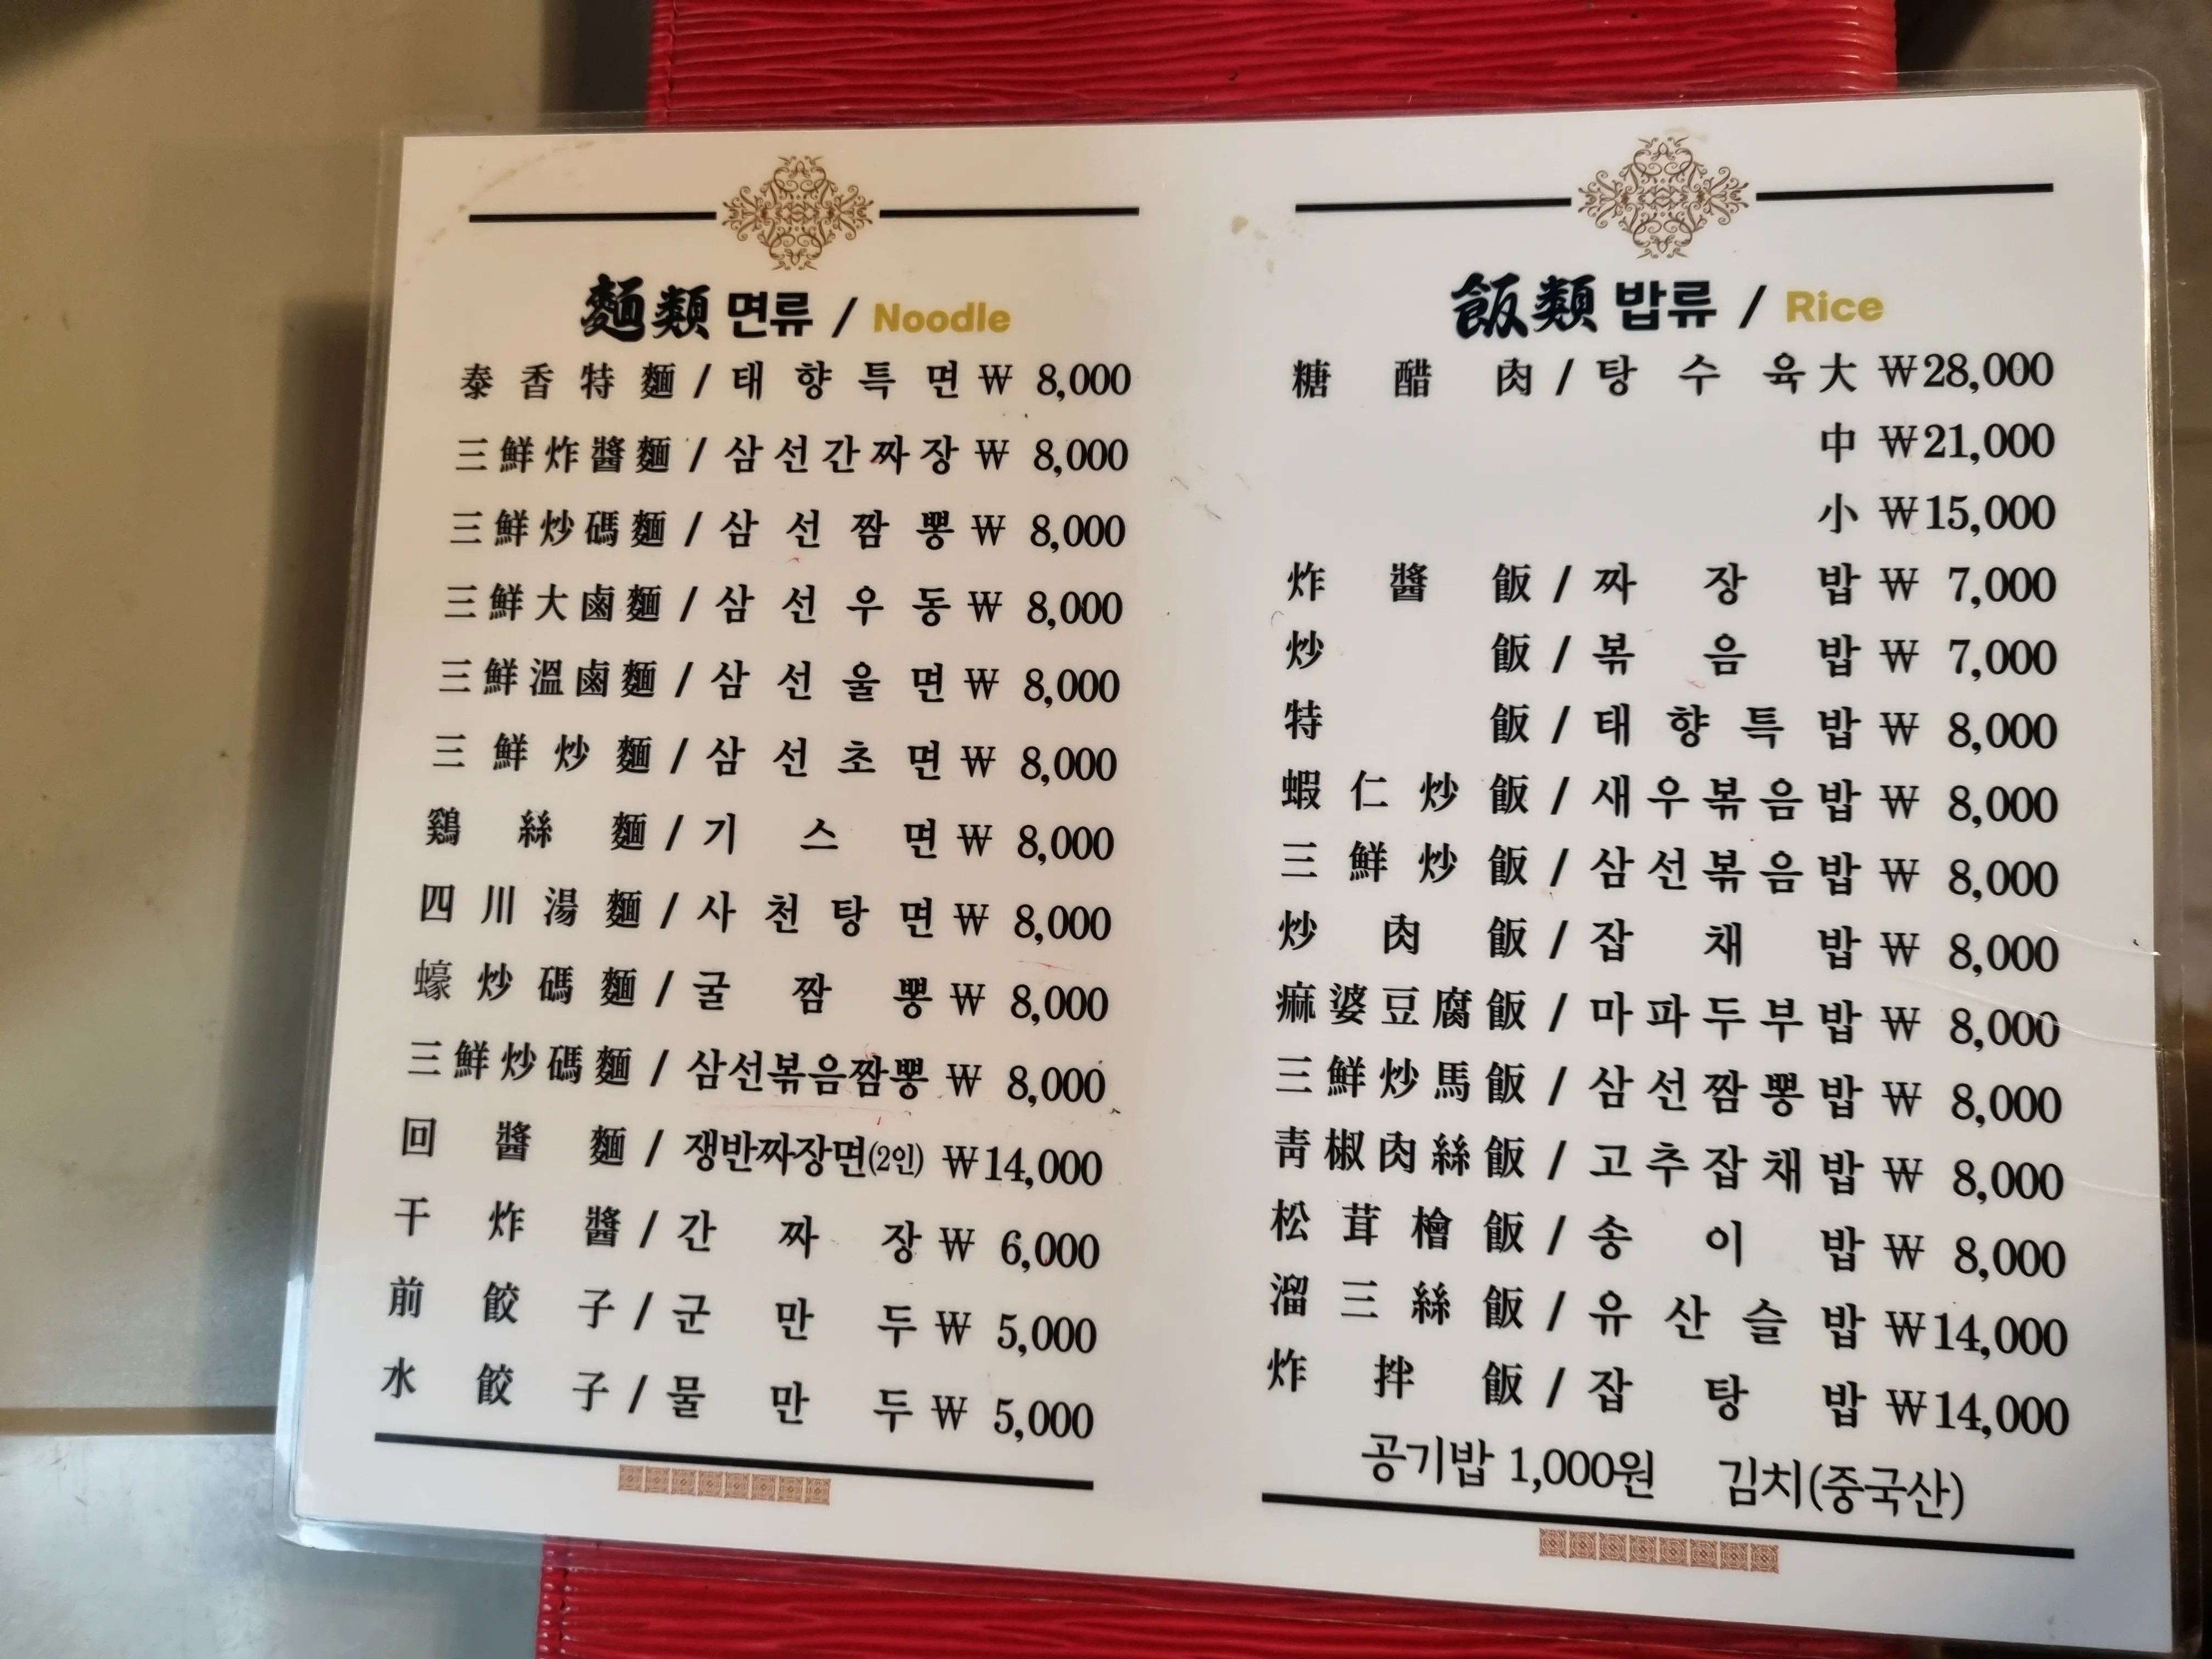 麵類 면류 / Noodle
泰香特麵 / 태향특면 ₩ 8,000
三鮮炸醬麵 / 삼선간짜장 ₩ 8,000
三鮮炒碼麵 / 삼선짬뽕 ₩ 8,000
三鮮大鹵麵 / 삼선우동 ₩ 8,000
三鮮溫鹵麵 / 삼선울면 ₩ 8,000
三鮮炒麵 / 삼선초면 ₩ 8,000
鷄絲麵 / 기스면 ₩ 8,000
四川湯麵 / 사천탕면 ₩ 8,000
蠔炒碼麵 / 굴짬뽕 ₩ 8,000
三鮮炒碼麵 / 삼선볶음짬뽕 ₩ 8,000
回醬麵 / 쟁반짜장면(2인) ₩14,000
干炸醬 / 간짜장 ₩ 6,000
前餃子 / 군만두 ₩ 5,000
水餃子 / 물만두 ₩ 5,000
飯類 밥류 / Rice
糖醋肉 / 탕수육 大 ₩28,000
中 ₩21,000
小 ₩15,000
炸醬飯 / 짜장밥 ₩ 7,000
炒飯 / 볶음밥 ₩ 7,000
特飯 / 태향특밥 ₩ 8,000
蝦仁炒飯 / 새우볶음밥 ₩ 8,000
三鮮炒飯 / 삼선볶음밥 ₩ 8,000
炒肉飯 / 잡채밥 ₩ 8,000
痲婆豆腐飯 / 마파두부밥 ₩ 8,000
三鮮炒馬飯 / 삼선짬뽕밥 ₩ 8,000
靑椒肉絲飯 / 고추잡채밥 ₩ 8,000
松茸檜飯 / 송이밥 ₩ 8,000
溜三絲飯 / 유산슬밥 ₩14,000
炸拌飯 / 잡탕밥 ₩14,000
공기밥 1,000원 김치(중국산)